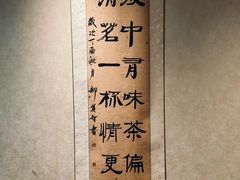 中有味茶偏
清茗一杯情更
歲次丁酉秋月